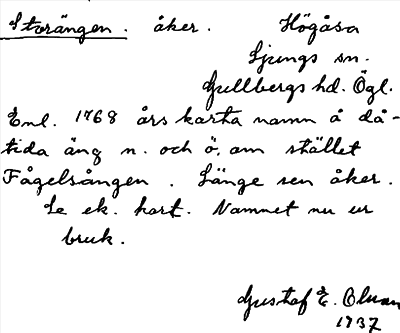 Storängen. åker. Högåsa
Ljungs sn.
Gullbergs hd. Ögl.
Enl. 1768 års karta namn å då-
tida äng n. och ö. om stället
Fågelsången. Länge sen åker.
Se ek. kart. Namnet nu ur
bruk.
Gustaf E. Olman
1937